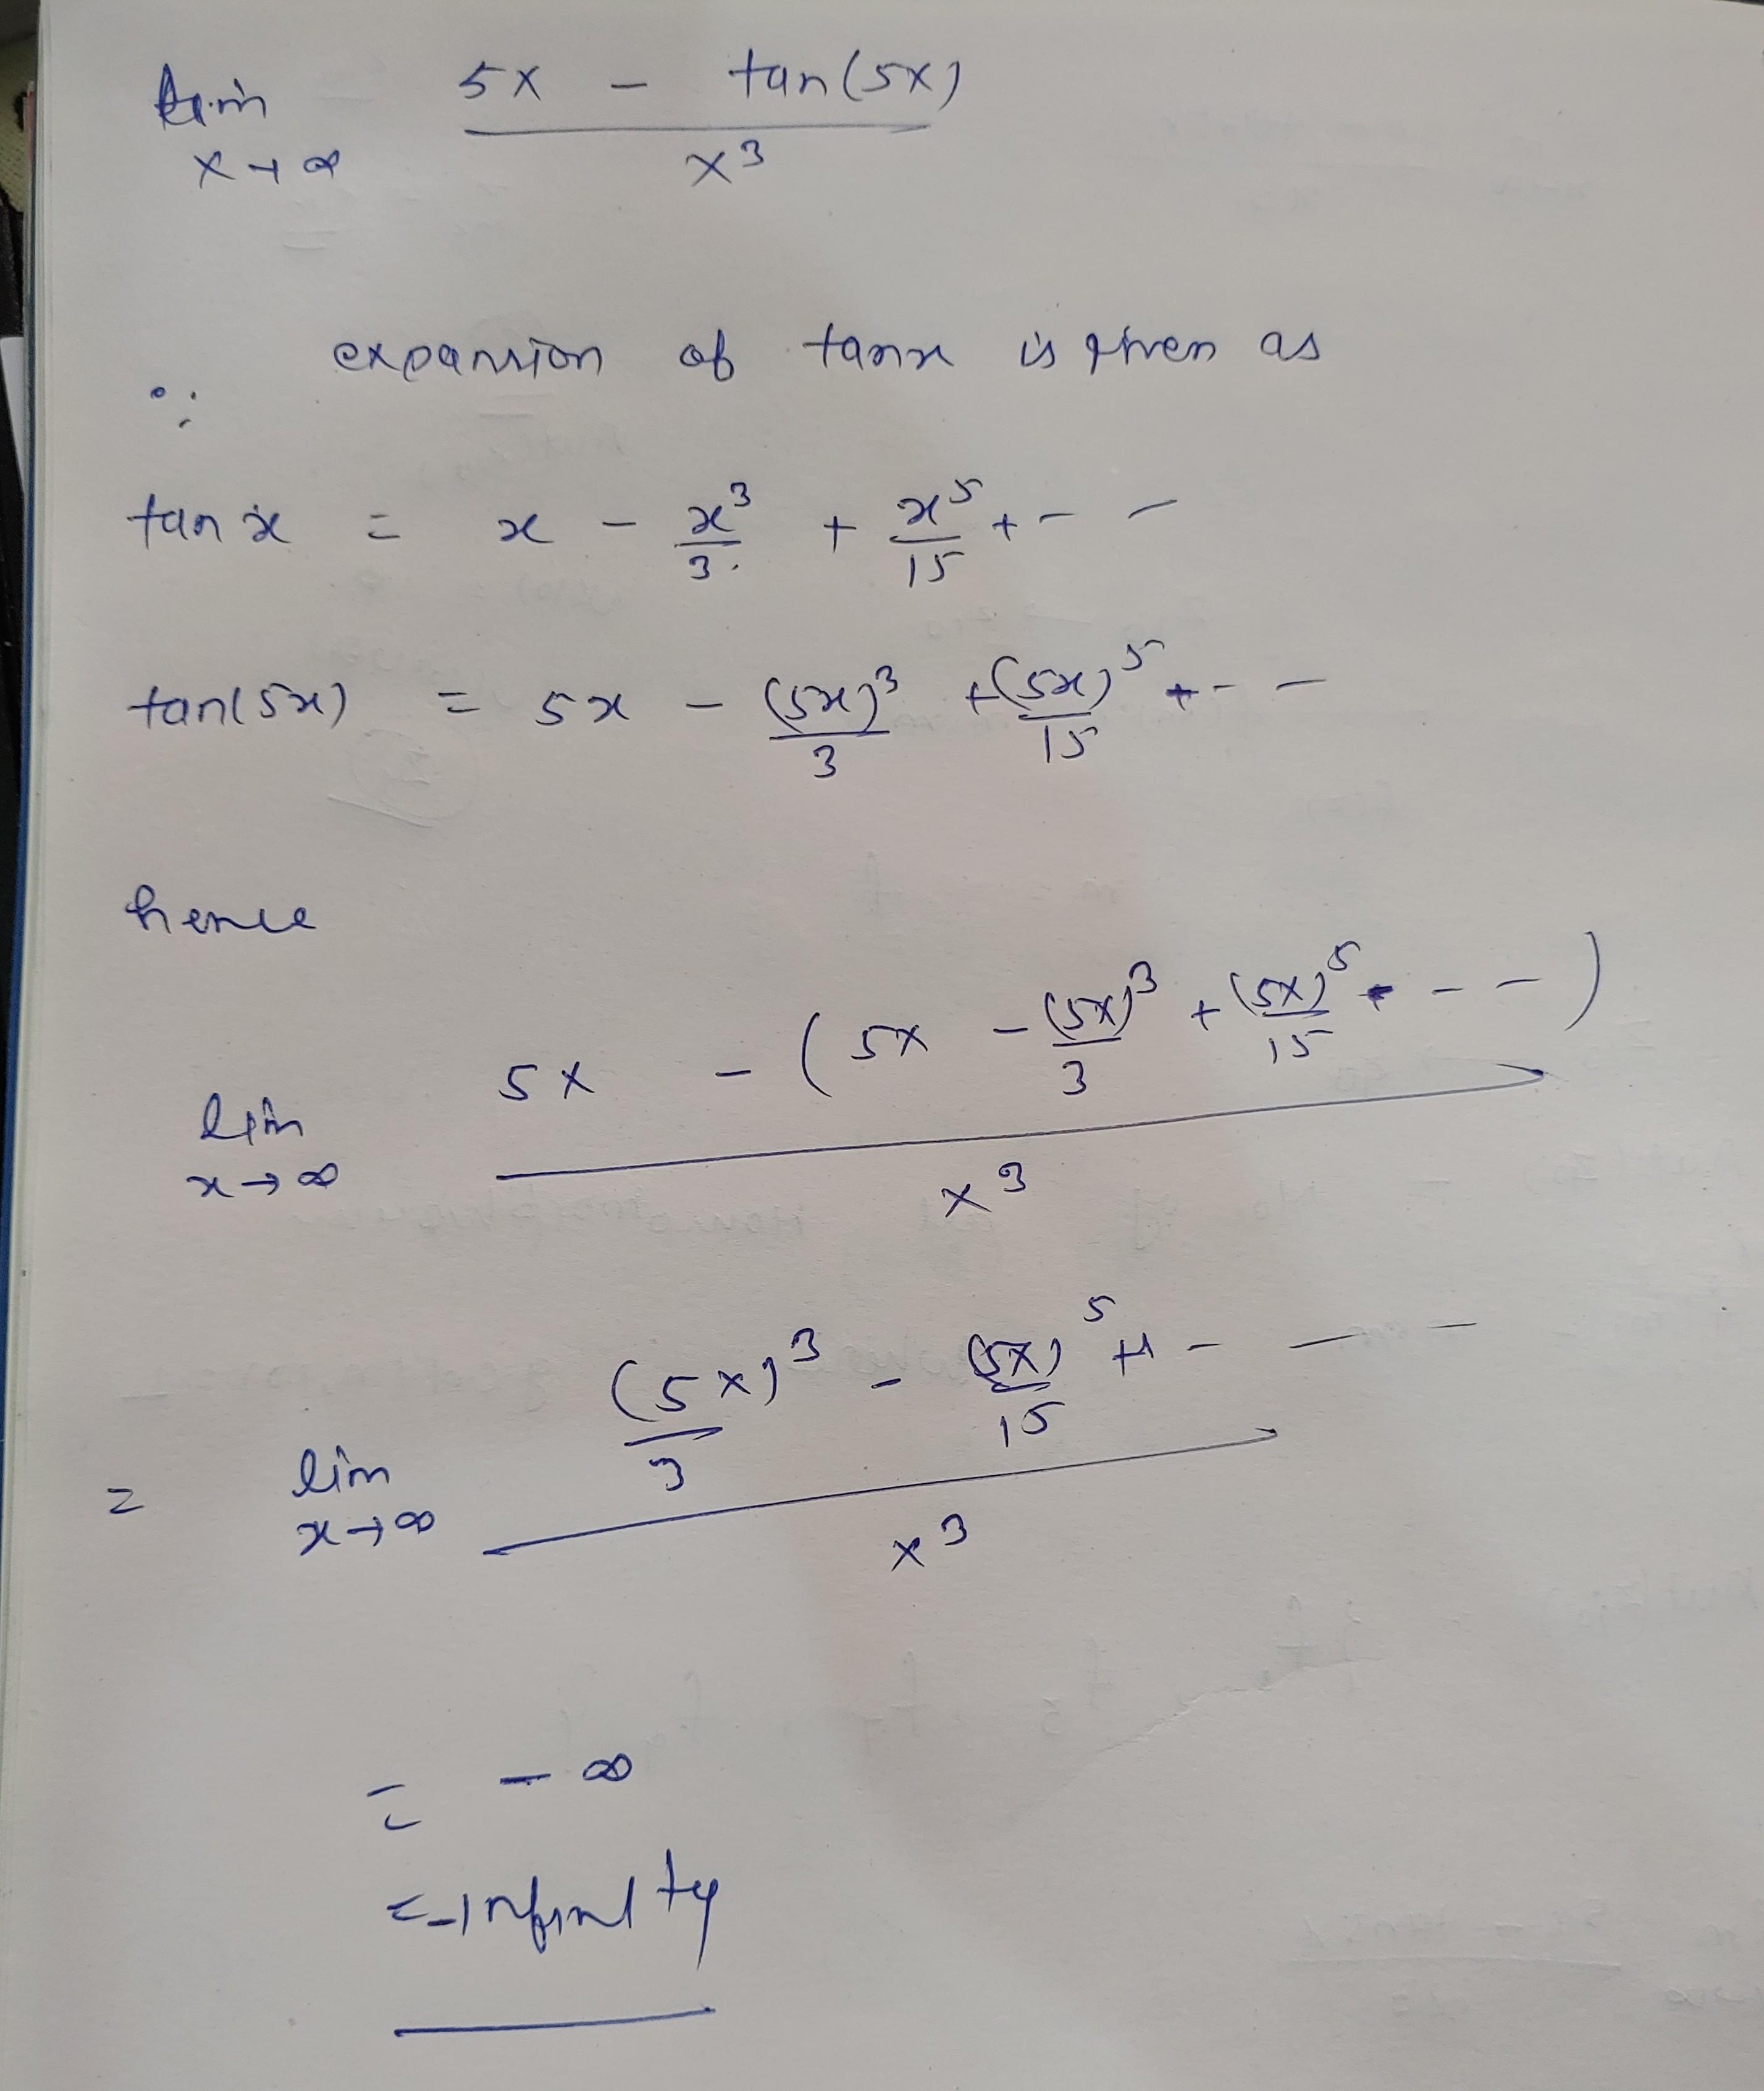 lim 5x - tan(5x)
x→∞ x³
∵ expansion of tanx is given as
tan x = x - x³/3 + x⁵/15 + - -
tan(5x) = 5x - (5x)³/3 + (5x)⁵/15 + - -
hence
lim 5x - (5x - (5x)³/3 + (5x)⁵/15 - - -)
x→∞ x³
= lim (5x)³/3 - (5x)⁵/15 + - - -
x→∞ x³
= - ∞
= -infinity